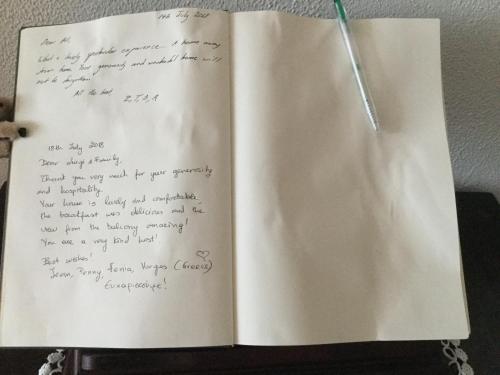 July
Dear
experience.. A home away
from home. Your generosity and wonderful home will
not be forgotten.
All the best
18th July 2018
Dear & Family,
Thank you very much for your generosity
and hospitality.
Your house is lovely and comfortable,
the breakfast was delicious and the
view from the balcony amazing!
You are a very kind host!
Best wishes!
Jenny, Xenia, (Greece)
Ευχαριστούμε!